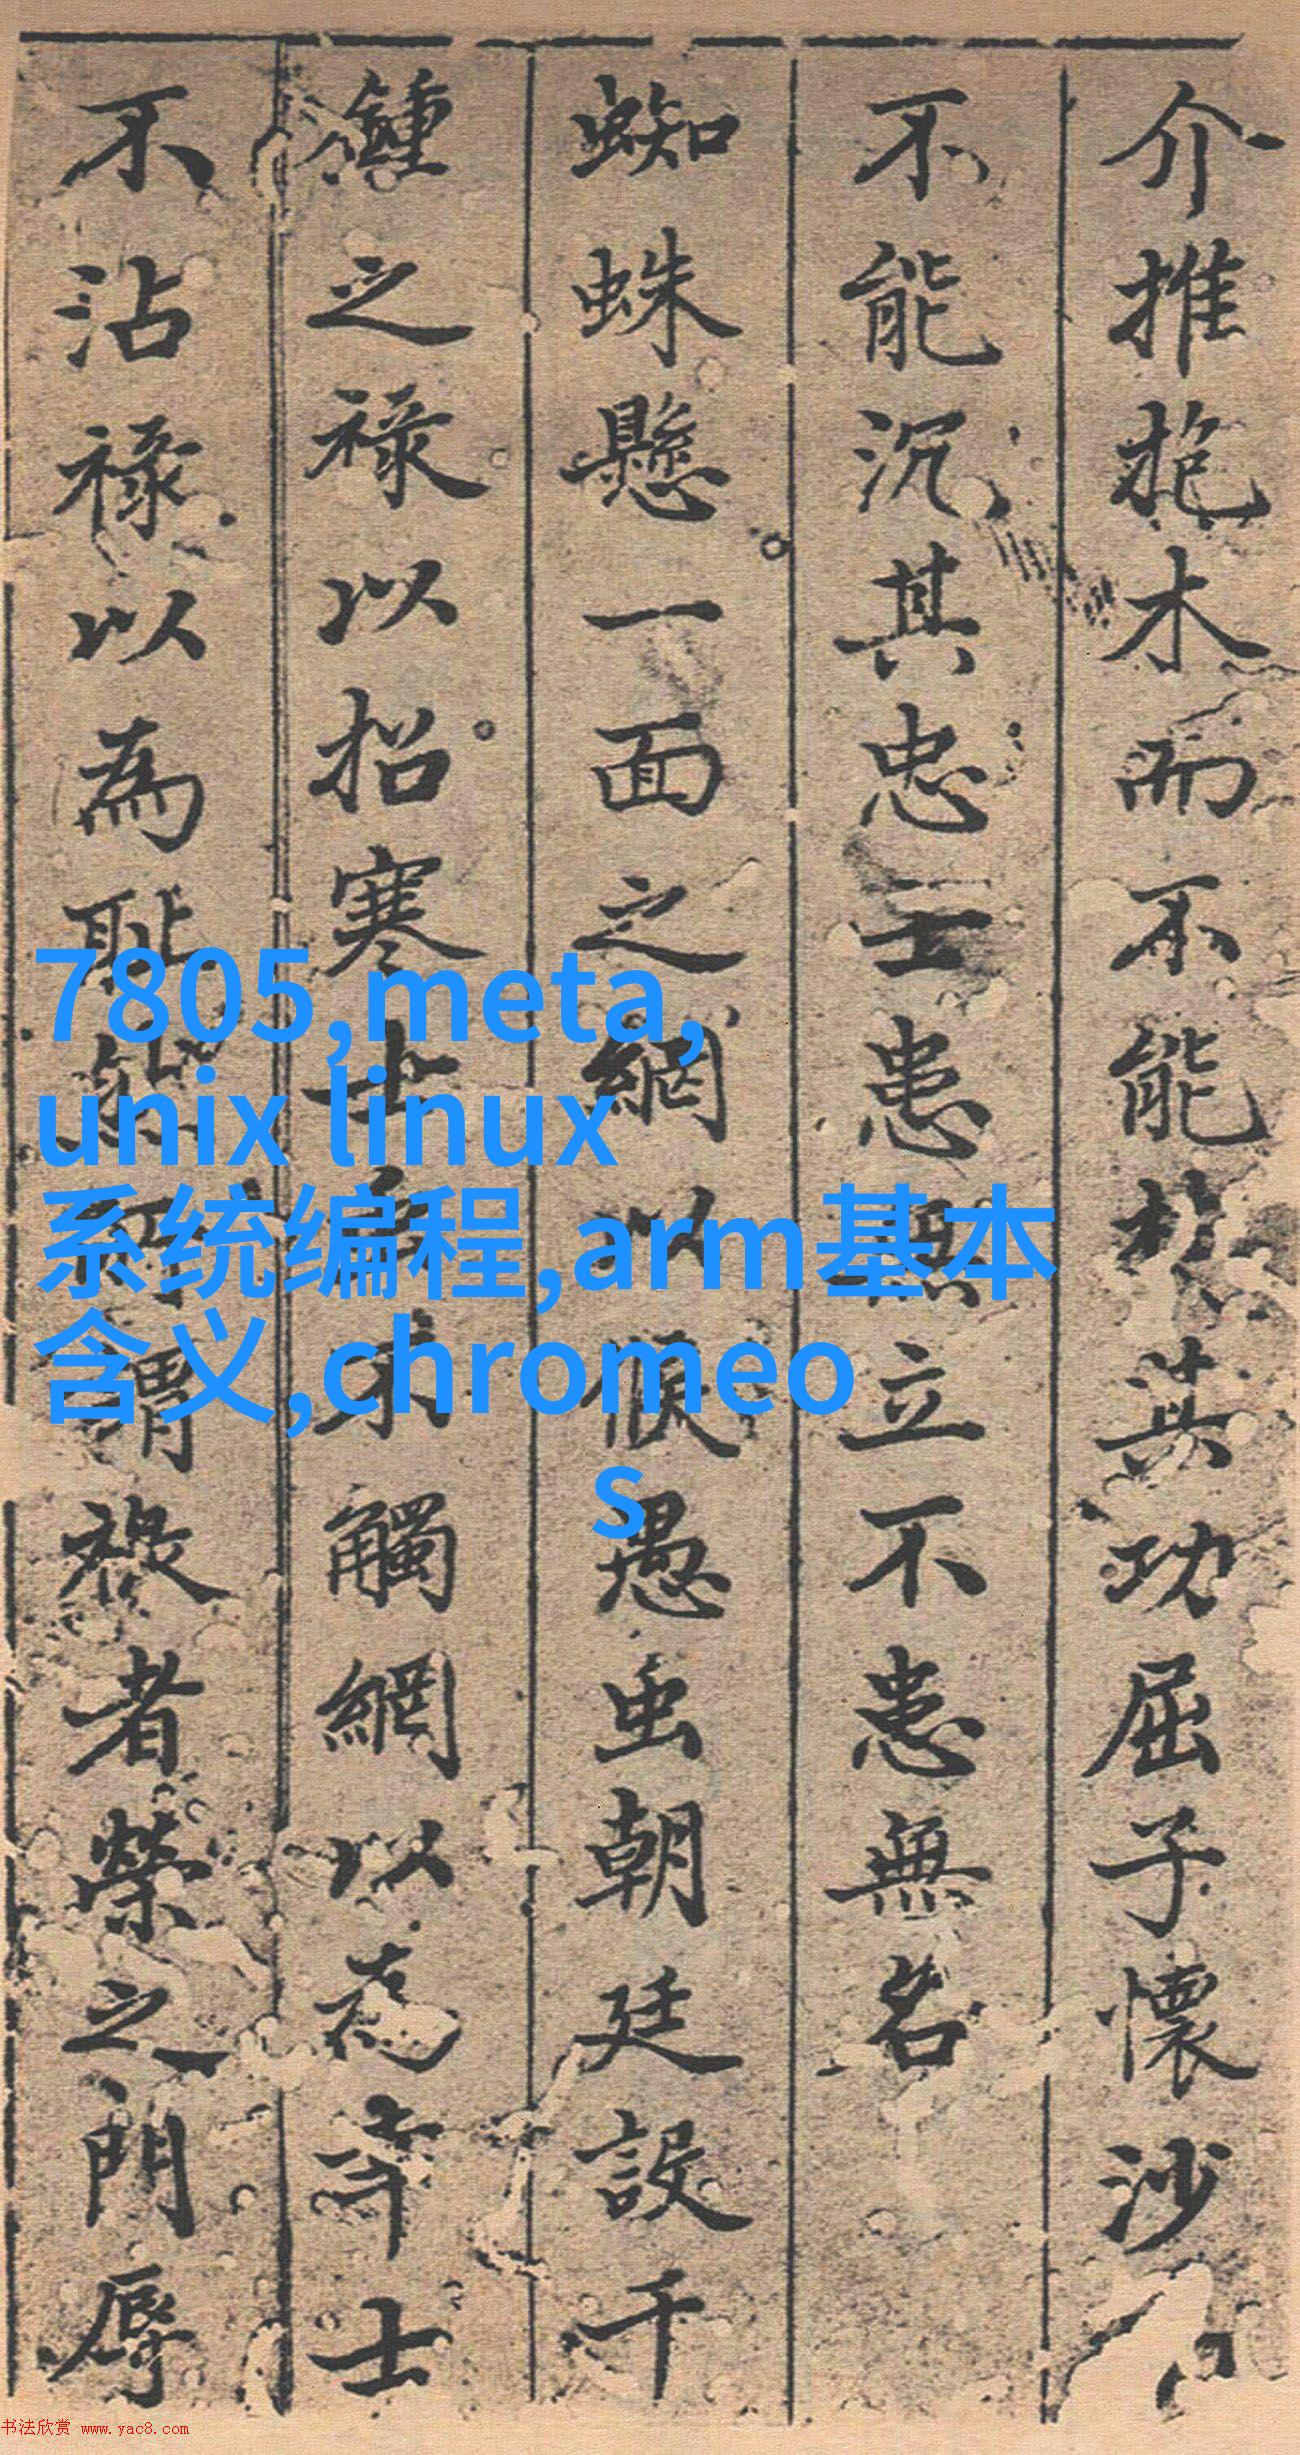 介推抱木而不能□其功屈子懷沙
不能沉其忠士患□立不患無名
蜘蛛懸一面之網以□愚虫朝廷設千
鍾之祿以招寒士□不觸網以為□士
不沾祿以為恥□□謂祿者榮之門辱
7805,meta,
unix linux
系统编程,arm基本
含义,chromeo
s
书法欣赏 www.yac8.com